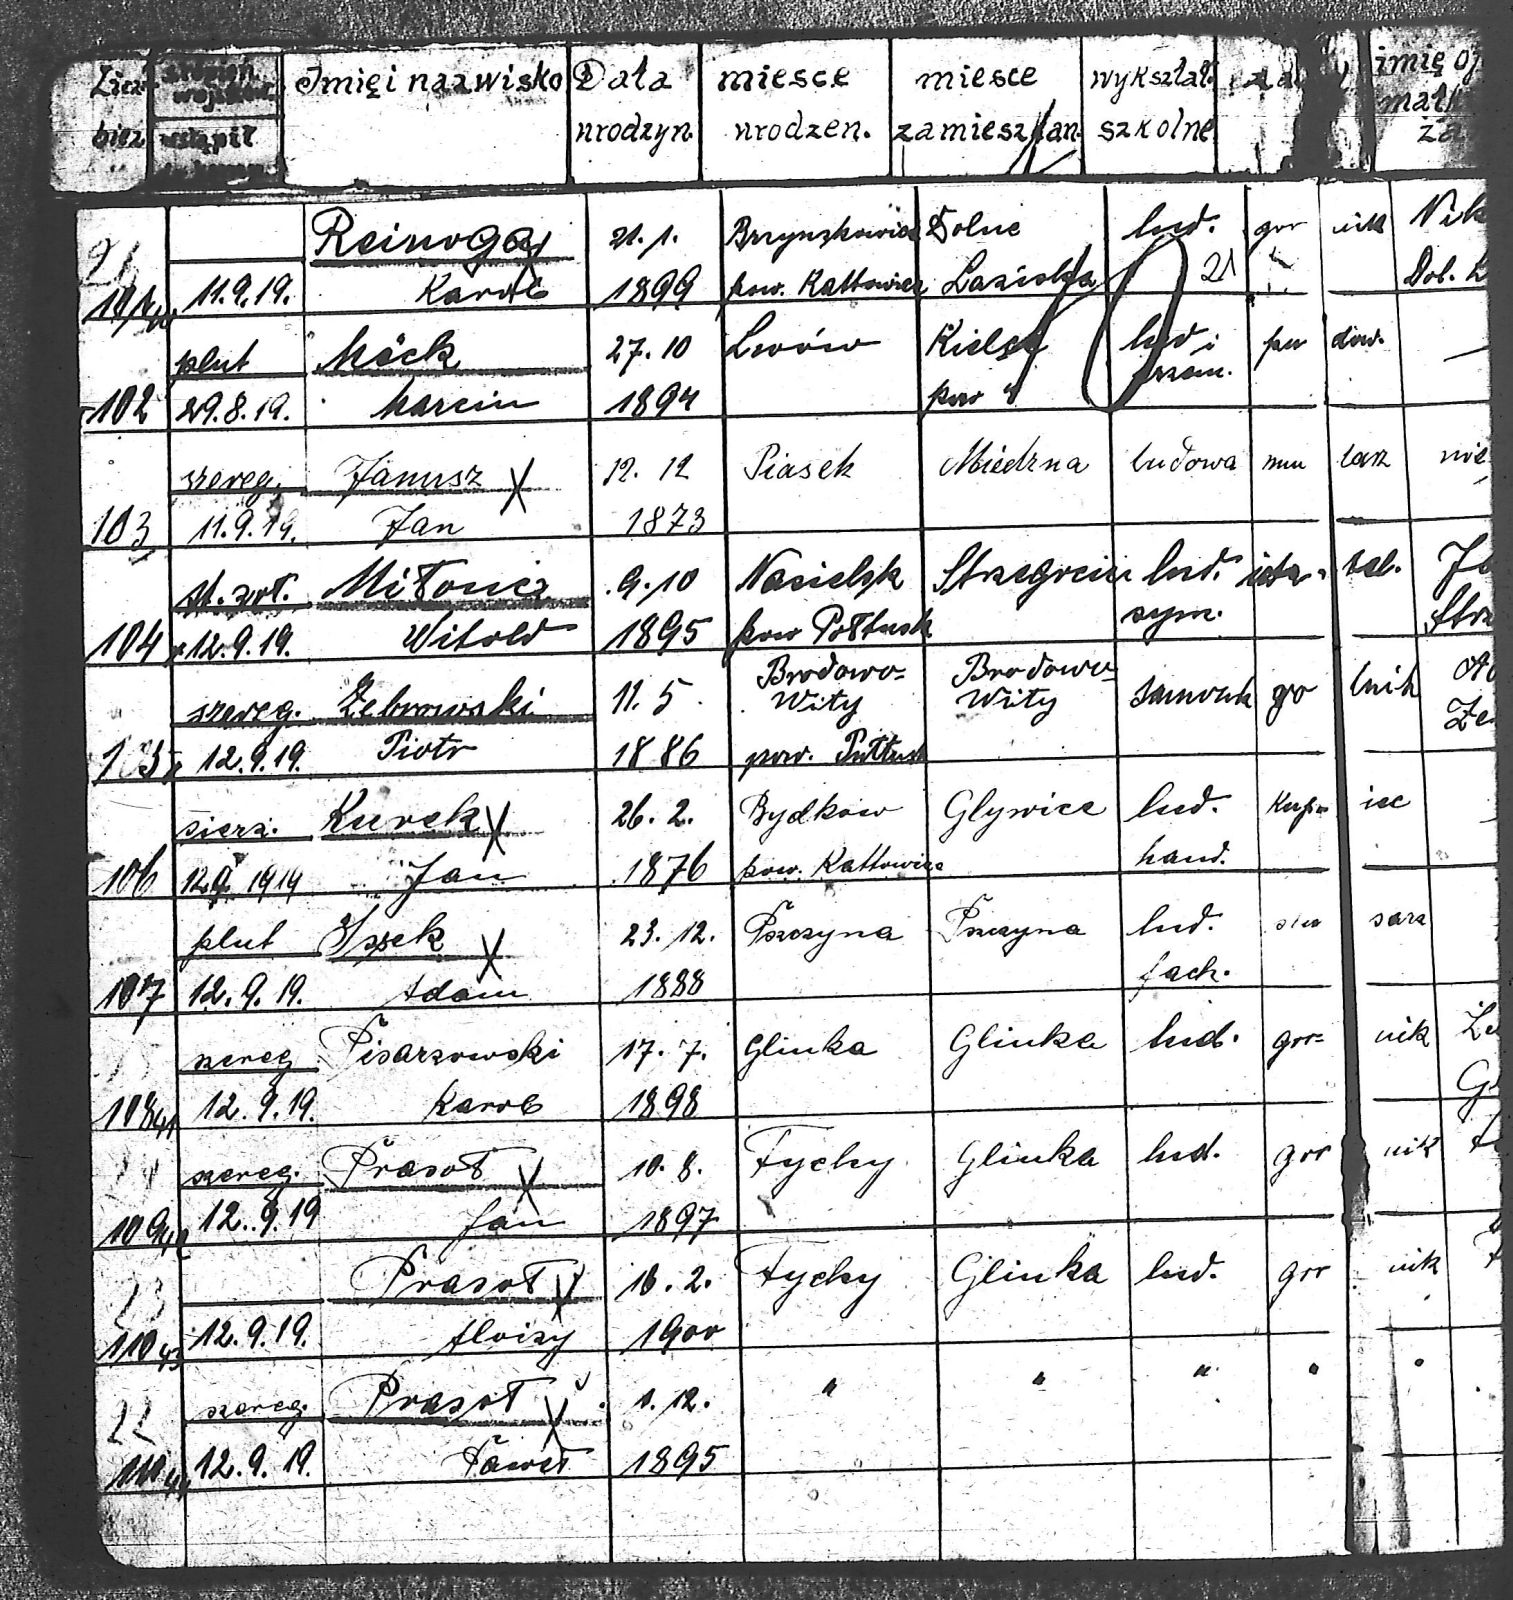 Licz. Stopień Imię i nazwisko Data miesce miesce wykształ. imię oj
bież. wstąpił urodzyn. urodzen. zamieszkan. szkolne matk
Reinoga 21. 1. Brzynskowice Dolne lud. gor nik Nik
101 11.9.19. Karol 1899 pow. Kattowice Łaziska 21 Dol. Ł
plut Möck 27. 10 Lwów Kielce lud i
102 29.8.19. Marcin 1894 pow "
szereg. Janusz X 12. 12 Piasek Miedzna ludowa mu larz nie
103 11.9.19. Jan 1873
Mitonicz 9. 10 Nasielsk Strzegocin lud.
104 12.9.19. Witold 1895 pow Połtusk
szereg. Żebrowski 11. 5 Brodowo- Wity Brodowo- Wity go lnik
105 12.9.19. Piotr 1886 pow. Pułtusk
sierż. Kurek X 26. 2. Bydkow Glywice lud. Kup= iec
106 12.9. 1919 Jan 1876 pow. Kattowice hand.
plut X 23. 12. Pszczyna Pszczyna lud.
107 12.9.19. Adam 1888 fach.
szereg Pisarzowski 17. 7. Glinka Glinka lud. gor= nik
108 41 12.9.19. Karol 1898
szereg. Prasoł X 10. 8. Tychy Glinka lud. gor nik
109 42 12.9.19 Jan 1897
23 Prasoł X 16. 2. Tychy Glinka lud. gor nik
110 43 12.9.19. Aloizy 1900
22 szereg. Prasoł X 1. 12. " " " " "
111 44 12.9.19. Paweł 1895